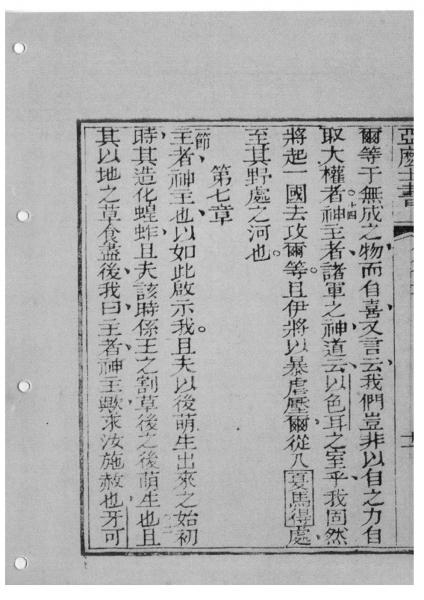 亞麽士書
爾等于無成之物而自喜又言云我們豈非以自之力自
取大權者○十四神主者諸軍之神道云以色耳之室乎我固然
將起一國去攻爾等且伊將以暴虐壓爾從入夏馬得處
至其野處之河也
第七章
節主者神主也以如此啟示我且夫以後萌生出來之始初
時其造化蝗蚱且夫該時係王之割草後之後萌生也且
其以地之草食盡後我曰主者神主歟求汝施赦也牙可